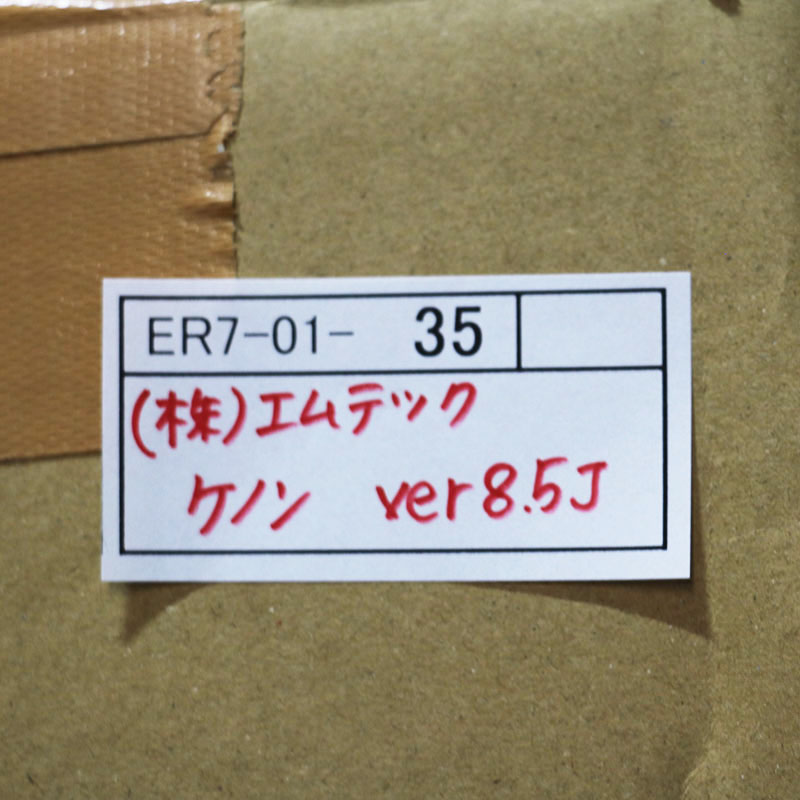 ER7-01- 35
(株)エムテック
ケノン ver8.5J